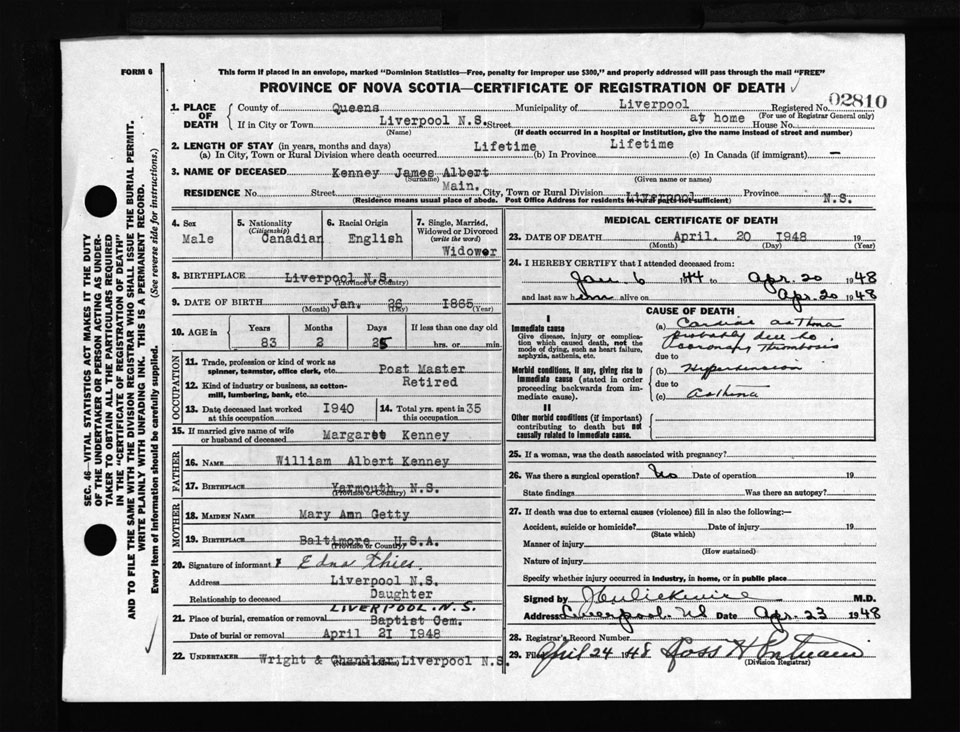 FORM 6
This form if placed in an envelope, marked "Dominion Statistics—Free, penalty for improper use $300," and properly addressed will pass through the mail "FREE"
PROVINCE OF NOVA SCOTIA—CERTIFICATE OF REGISTRATION OF DEATH
02810
1. PLACE OF DEATH County of Queens Municipality of Liverpool Registered No.
(For use of Registrar General only)
If in City or Town Liverpool N.S. Street at home House No.
(Name) (If death occurred in a hospital or institution, give the name instead of street and number)
2. LENGTH OF STAY (in years, months and days)
(a) In City, Town or Rural Division where death occurred Lifetime (b) In Province Lifetime (c) In Canada (if immigrant) —
3. NAME OF DECEASED Kenney James Albert
(Surname) (Given name or names)
RESIDENCE No. Street Main. City, Town or Rural Division Liverpool Province N.S.
(Residence means usual place of abode. Post Office Address for residents in rural parts not sufficient)
4. Sex
Male
5. Nationality
(Citizenship)
Canadian
6. Racial Origin
English
7. Single, Married, Widowed or Divorced
(write the word)
Widower
8. BIRTHPLACE Liverpool N.S.
(Province or Country)
9. DATE OF BIRTH Jan. 26 1865
(Month) (Day) (Year)
10. AGE in Years Months Days If less than one day old
83 2 25 hrs. or min.
OCCUPATION
11. Trade, profession or kind of work as spinner, teamster, office clerk, etc. Post Master
12. Kind of industry or business, as cotton-mill, lumbering, bank, etc. Retired
13. Date deceased last worked at this occupation 1940
14. Total yrs. spent in this occupation 35
15. If married give name of wife or husband of deceased Margaret Kenney
FATHER
16. NAME William Albert Kenney
17. BIRTHPLACE Yarmouth N.S.
(Province or Country)
MOTHER
18. MAIDEN NAME Mary Ann Getty
19. BIRTHPLACE Baltimore U.S.A.
(Province or Country)
20. Signature of informant Edna Thies.
Address Liverpool N.S.
Relationship to deceased Daughter
LIVERPOOL. N.S.
21. Place of burial, cremation or removal Baptist Cem.
Date of burial or removal April 21 1948
22. UNDERTAKER Wright & Chandler Liverpool N.S.
MEDICAL CERTIFICATE OF DEATH
23. DATE OF DEATH April. 20 1948 19
(Month) (Day) (Year)
24. I HEREBY CERTIFY that I attended deceased from:
Jan. 6 1944 to Apr. 20 1948
and last saw him alive on Apr. 20 1948
CAUSE OF DEATH
I
Immediate cause
Give disease, injury or complication which caused death, not the mode of dying, such as heart failure, asphyxia, asthenia, etc.
(a) Cardiac asthma
probably due to
coronary thrombosis
due to
Morbid conditions, if any, giving rise to immediate cause (stated in order proceeding backwards from immediate cause).
(b) Hypertension
due to
(c) asthma
II
Other morbid conditions (if important) contributing to death but not causally related to immediate cause.
25. If a woman, was the death associated with pregnancy?
26. Was there a surgical operation? No Date of operation 19
State findings Was there an autopsy?
27. If death was due to external causes (violence) fill in also the following:—
Accident, suicide or homicide? Date of injury 19
(State which)
Manner of injury
(How sustained)
Nature of injury
Specify whether injury occurred in industry, in home, or in public place
Signed by M.D.
Address Liverpool. NS Date Apr. 23 1948
28. Registrar's Record Number
29. Filed April 24 1948 Ross H
(Division Registrar)
SEC. 46—VITAL STATISTICS ACT MAKES IT THE DUTY
OF THE UNDERTAKER OR PERSON ACTING AS UNDER-
TAKER TO OBTAIN ALL THE PARTICULARS REQUIRED
IN THE "CERTIFICATE OF REGISTRATION OF DEATH"
AND TO FILE THE SAME WITH THE DIVISION REGISTRAR WHO SHALL ISSUE THE BURIAL PERMIT.
WRITE PLAINLY WITH UNFADING INK. THIS IS A PERMANENT RECORD.
Every item of information should be carefully supplied. (See reverse side for instructions.)